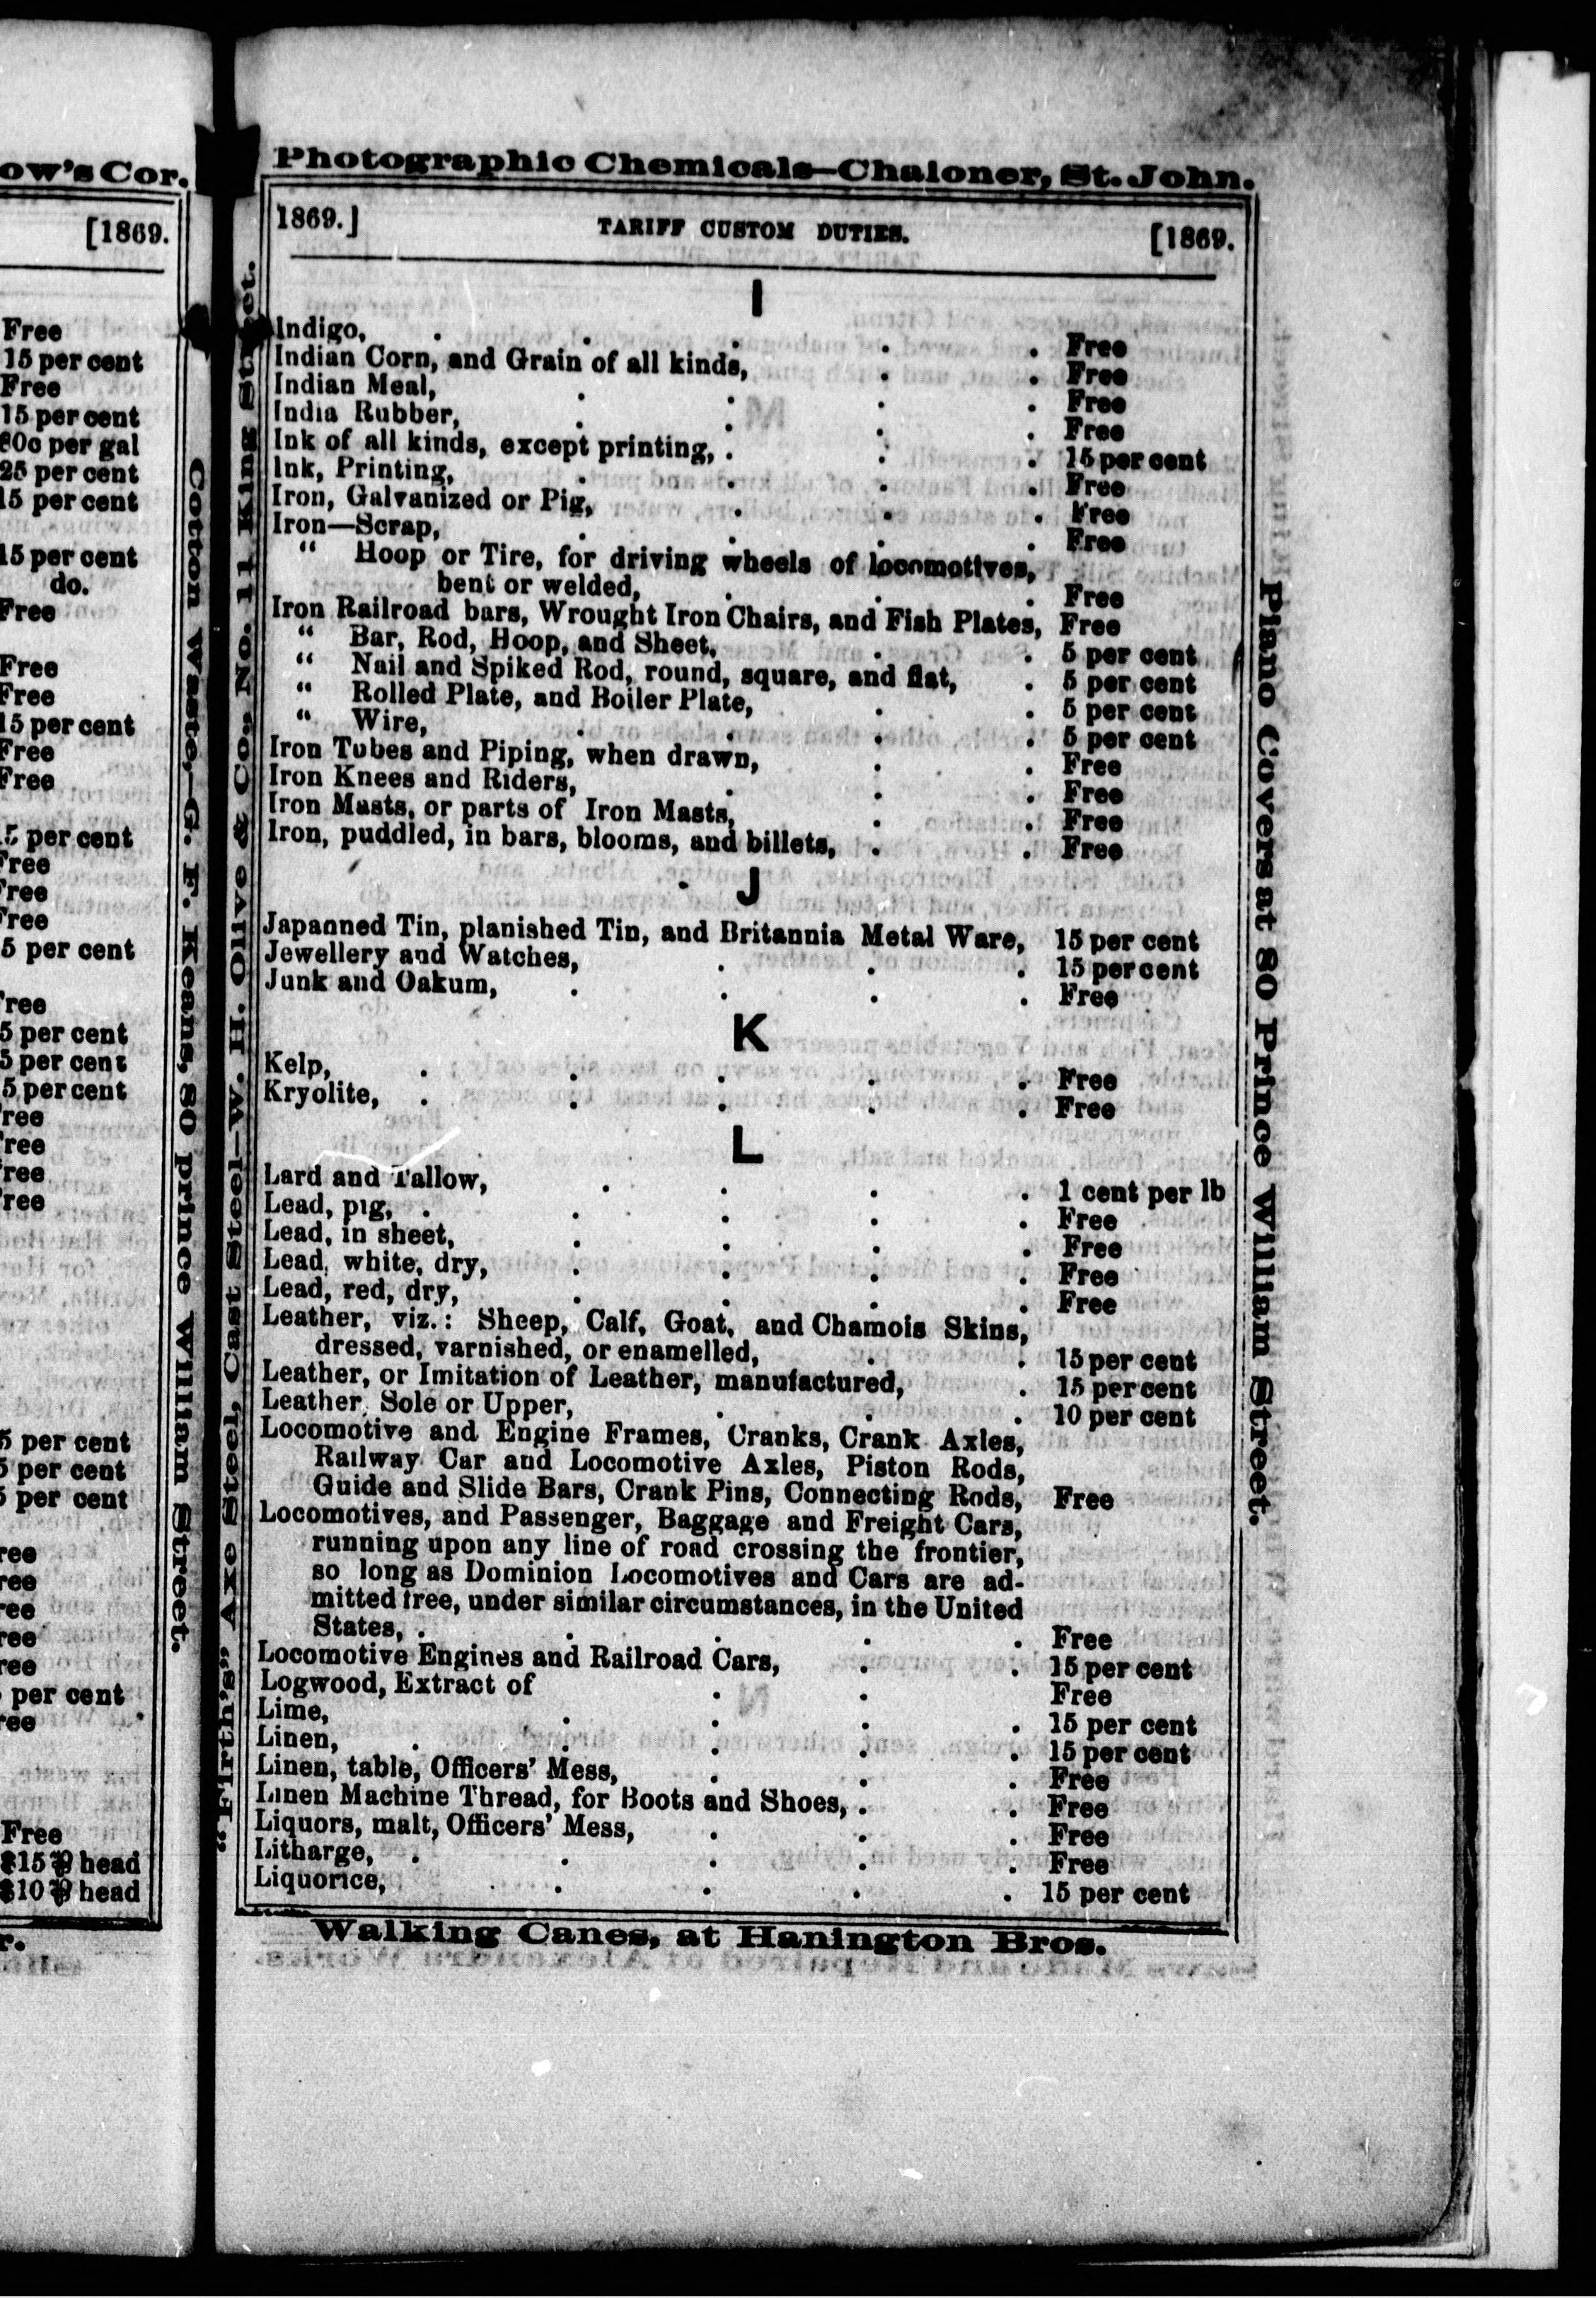 ow's Cor.
[1869.
Free
15 per cent
Free
15 per cent
60c per gal
25 per cent
15 per cent
15 per cent
do.
Free
Free
Free
15 per cent
Free
Free
per cent
Free
Free
Free
5 per cent
Free
5 per cent
5 per cent
5 per cent
ree
ree
ree
ree
5 per cent
5 per cent
5 per cent
ree
ree
ree
ree
ree
per cent
ree
Free
$15 ⅌ head
$10 ⅌ head
r.
Cotton Waste,—G. F. Keans, 80 prince William Street.
"Firth's" Axe Steel, Cast Steel—W. H. Olive & Co., No. 11 King Street.
Photographic Chemicals—Chaloner, St. John.
1869.] TARIFF CUSTOM DUTIES. [1869.
I
Indigo, . . . . . Free
Indian Corn, and Grain of all kinds, . . Free
Indian Meal, . . . . Free
India Rubber, . . . . Free
Ink of all kinds, except printing, . . . 15 per cent
Ink, Printing, . . . . Free
Iron, Galvanized or Pig, . . . Free
Iron—Scrap, . . . . Free
" Hoop or Tire, for driving wheels of locomotives,
bent or welded, . . . Free
Iron Railroad bars, Wrought Iron Chairs, and Fish Plates, Free
" Bar, Rod, Hoop, and Sheet, . . 5 per cent
" Nail and Spiked Rod, round, square, and flat, . 5 per cent
" Rolled Plate, and Boiler Plate, . . 5 per cent
" Wire, . . . . 5 per cent
Iron Tubes and Piping, when drawn, . . Free
Iron Knees and Riders, . . . Free
Iron Masts, or parts of Iron Masts, . . Free
Iron, puddled, in bars, blooms, and billets, . . Free
J
Japanned Tin, planished Tin, and Britannia Metal Ware, 15 per cent
Jewellery and Watches, . . . 15 per cent
Junk and Oakum, . . . . Free
K
Kelp, . . . . . Free
Kryolite, . . . . . Free
L
Lard and Tallow, . . . . 1 cent per lb
Lead, pig, . . . . . Free
Lead, in sheet, . . . . Free
Lead, white, dry, . . . . Free
Lead, red, dry, . . . . Free
Leather, viz.: Sheep, Calf, Goat, and Chamois Skins,
dressed, varnished, or enamelled, . . 15 per cent
Leather, or Imitation of Leather, manufactured, . 15 per cent
Leather, Sole or Upper, . . . 10 per cent
Locomotive and Engine Frames, Cranks, Crank Axles,
Railway Car and Locomotive Axles, Piston Rods,
Guide and Slide Bars, Crank Pins, Connecting Rods, Free
Locomotives, and Passenger, Baggage and Freight Cars,
running upon any line of road crossing the frontier,
so long as Dominion Locomotives and Cars are ad-
mitted free, under similar circumstances, in the United
States, . . . . . Free
Locomotive Engines and Railroad Cars, . . 15 per cent
Logwood, Extract of . . Free
Lime, . . . . 15 per cent
Linen, . . . . 15 per cent
Linen, table, Officers' Mess, . . . Free
Linen Machine Thread, for Boots and Shoes, . . Free
Liquors, malt, Officers' Mess, . . . Free
Litharge, . . . . . Free
Liquorice, . . . . 15 per cent
Piano Covers at 80 Prince William Street.
Walking Canes, at Hanington Bros.